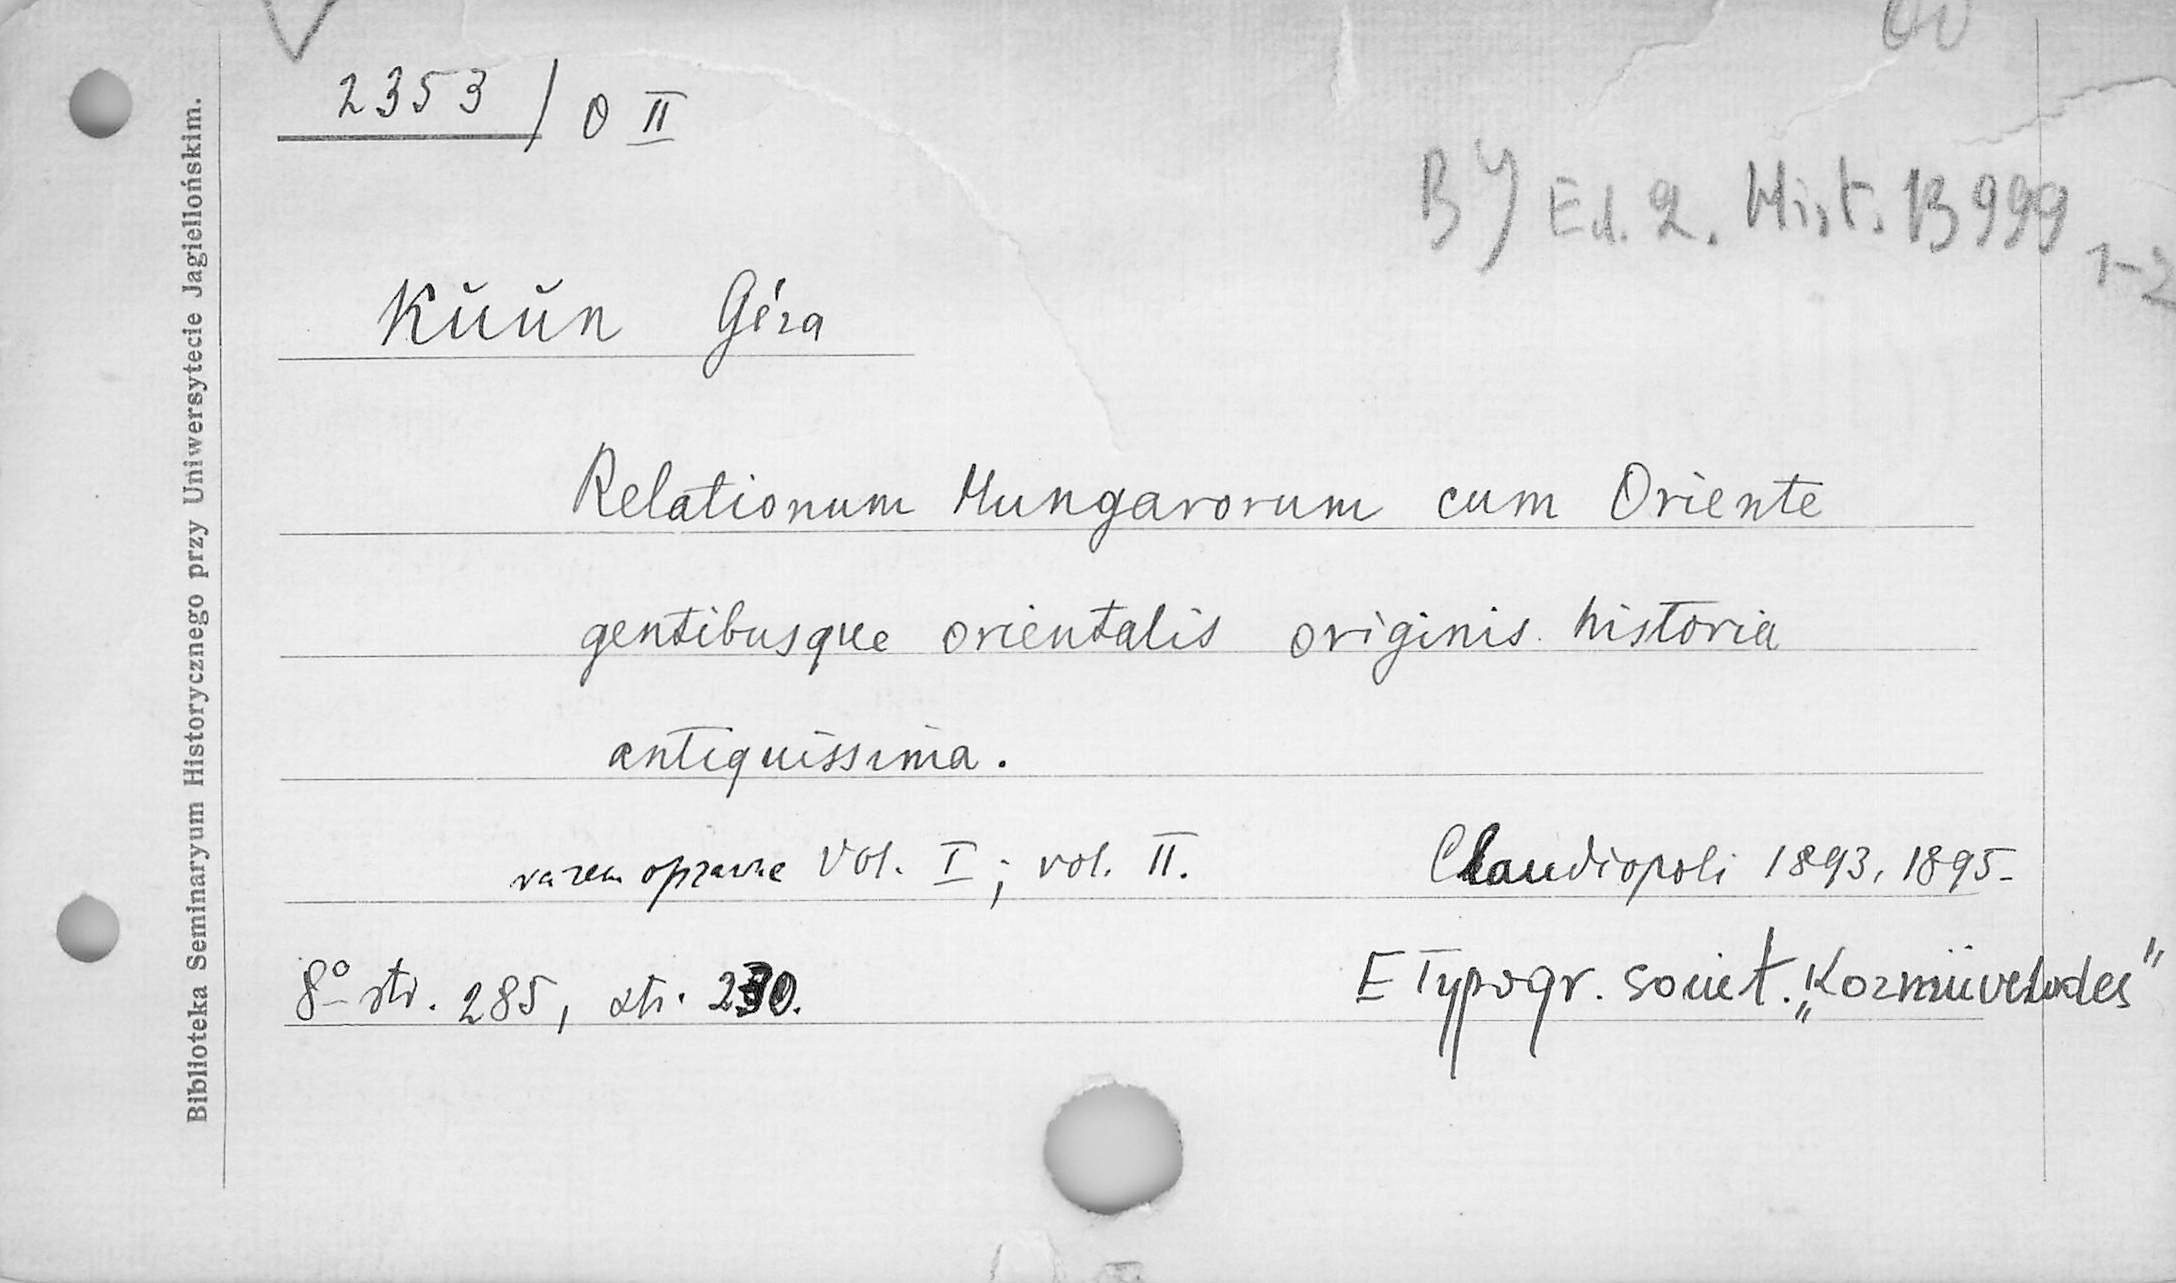 2353 / O II
BJ Ed. 2. Hist. B 999 1-2
Kŭŭn Géza
Relationum Hungarorum cum Oriente
gentibusque orientalis originis historia
antiquissima.
razem oprawne Vol. I ; vol. II. Claudiopoli 1893, 1895
8° str. 285, str. 230. E Typogr. societ. „Kozmüvelodes"
Biblioteka Seminaryum Historycznego przy Uniwersytecie Jagiellońskim.